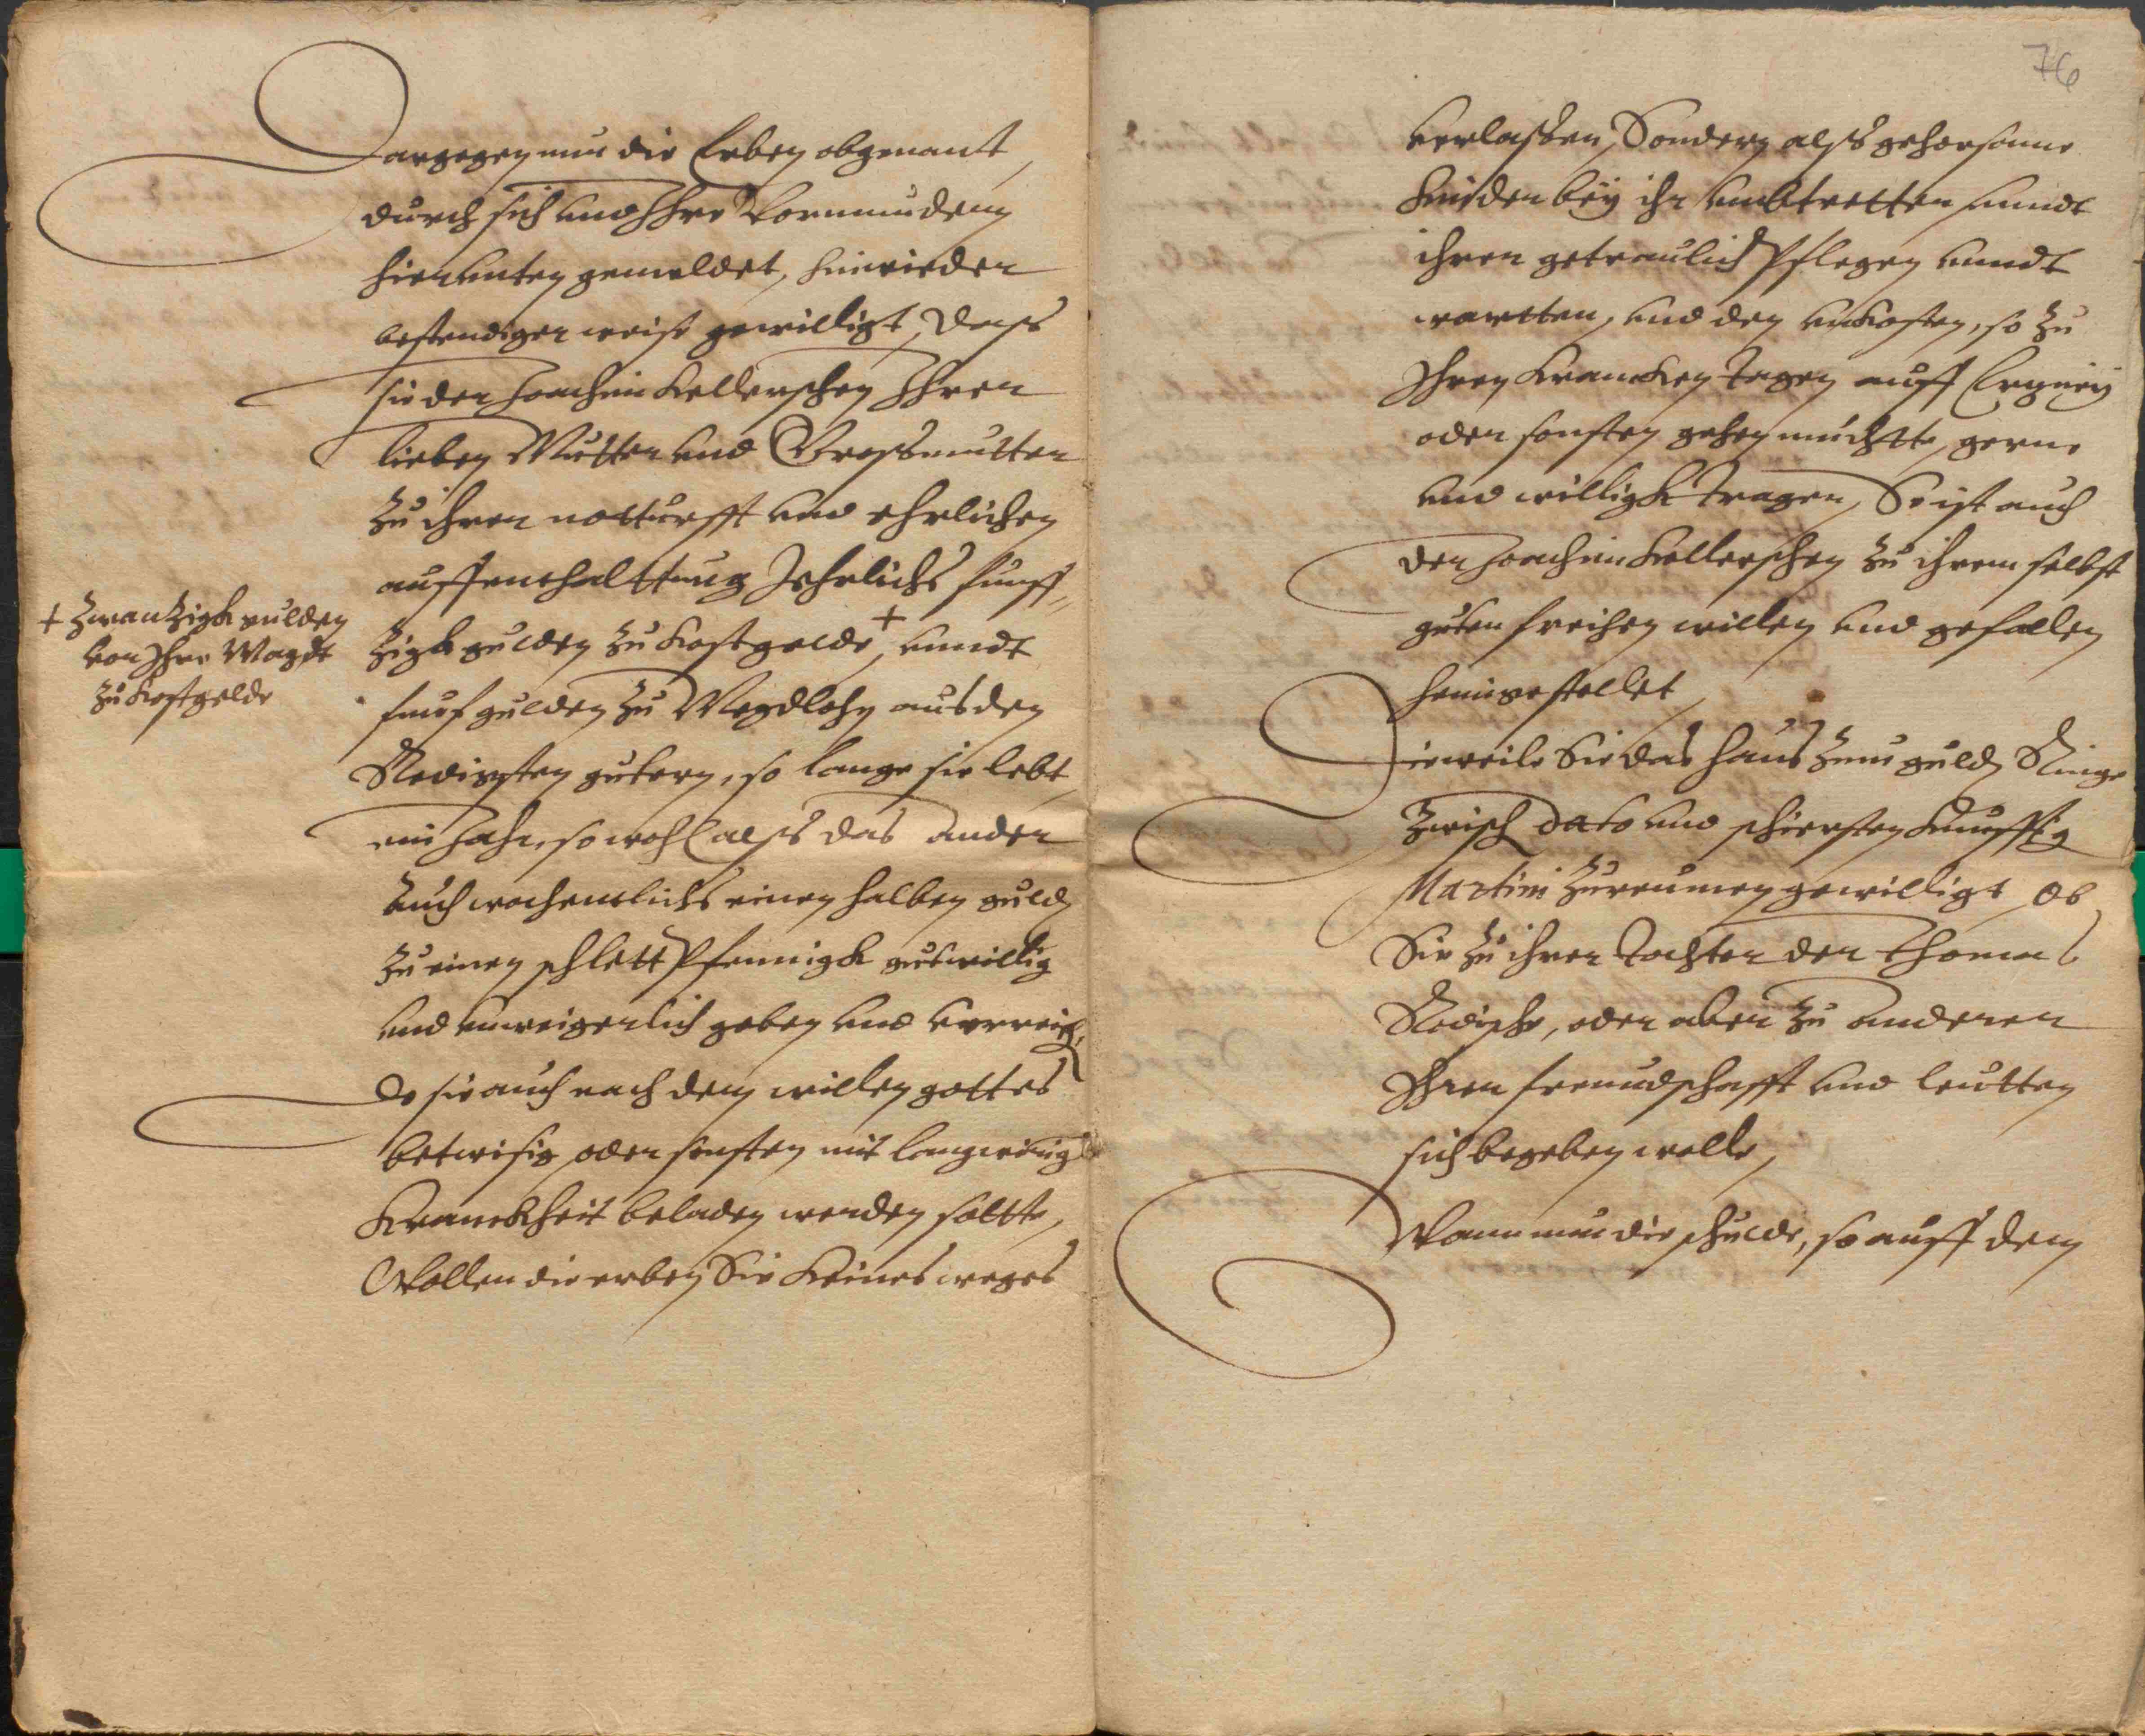 Dargegen nun die Erben obgenant,
durch sich und Ihre Vormunden
hierunten gemeldet, hinwieder
bestendiger weise gewilligt, dass
sie der Joachim Kellerschen Ihrer
lieben Mutter und Grossmutter
zu ihrer notturfft und ehrlichen
auffenthalttung Jehrlichs funff„
zigk gulden zu kostgelde +, unndt
funf gulden zu Megdlohn aus den
gutern, so lange sie lebt
ein Jahr, so wohl alss das ander
Auch wochentlichs einen halben guld
zu einen schlett Pfennigk gutwillig
und unweigerlich geben und verreich,
Do sie auch nach dem willen gottes
betrisig oder sonsten mit langwirig
Kranckheit beladen werden soltte,
Wollen die erben Sie keines weges
+ Zwanzigk gulden
vor Ihre Magdt
zu kostgelde
76
verlassen, Sondern alss gehorsame
Kinder bey ihr umbtretten unndt
ihrer getreulich Pflegen unndt
wartten, und den unkosten, so zu
Ihren krancken tagen auff Ertzney
oder sonsten gehen muchtte, gerne
und willigk tragen, So ist auch
der Joachim Kellerschen zu ihrem selbst
guten freihen willen und gefallen
heimgestellet,
Dieweile Sie das haus zum guld Ringe
zwisch dato und schiersten kunfftig
Martini zureumen gewilligt, Ob
Sie zu ihrer tochter der Thomas
oder aber zu anderer
Ihrer freundschafft und leutten
sich begeben wolle,
Wann nun die schulde, so auff dem